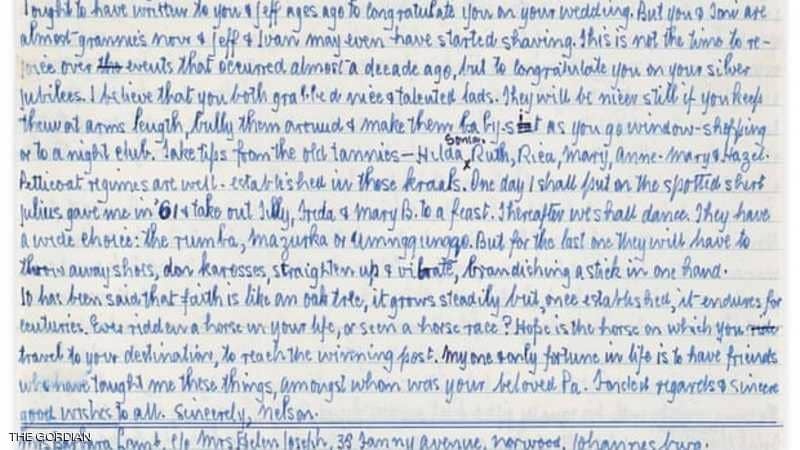 I ought to have written to you & Jeff ages ago to congratulate you on your wedding. But you & Toni are
almost grannies now & Jeff & Ivan may even have started shaving. This is not the time to re-
joice over the events that occurred almost a decade ago, but to congratulate you on your silver
jubilees. I believe that you both grabbed nice & talented lads. They will be nicer still if you keep
them at arms length, bully them around & make them baby-sit as you go window-shopping
or to a night club. Take tips from the old tannies — Hilda, Sonia, Ruth, Rica, Mary, Anne-Mary & Hazel.
Petticoat regimes are well-established in those kraals. One day I shall put on the spotted shirt
Julius gave me in '61 & take out Tilly, Freda & Mary B. to a feast. Thereafter we shall dance. They have
a wide choice: the rumba, mazurka or umngqungqo. But for the last one they will have to
throw away shoes, don karosses, straighten up & vibrate, brandishing a stick in one hand.
It has been said that faith is like an oak tree, it grows steadily but, once established, it endures for
centuries. Ever ridden a horse in your life, or seen a horse race? Hope is the horse on which you ride
travel to your destination, to reach the winning post. My one & only fortune in life is to have friends
who have taught me these things, amongst whom was your beloved Pa. Fondest regards & sincere
good wishes to all. Sincerely, Nelson.
Mrs Barbara Lamb, c/o Mrs Helen Joseph, 35 Fanny Avenue, Norwood, Johannesburg.
THE GORDIAN